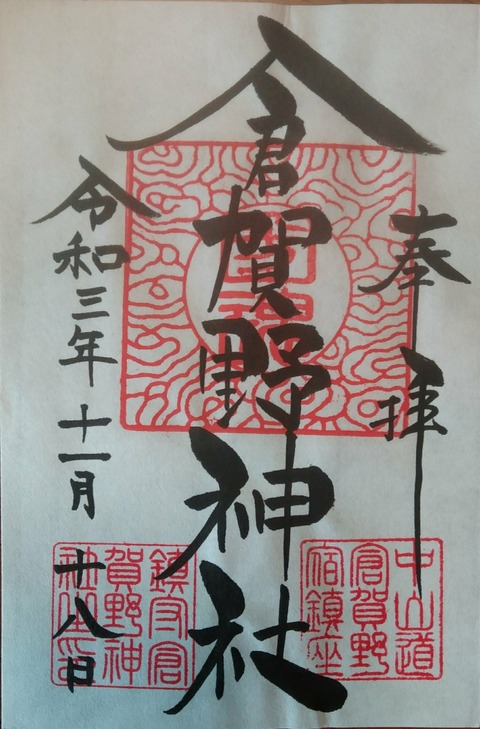 奉拝
倉賀野神社
令和三年十一月廿八日
中山道
倉賀野
宿鎮座
鎮守倉
賀野神
社之印